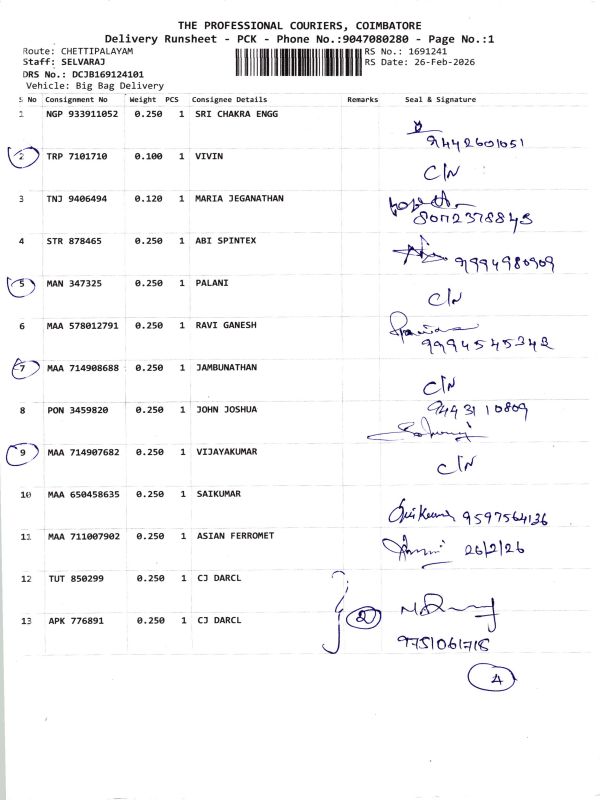 THE PROFESSIONAL COURIERS, COIMBATORE
Delivery Runsheet - PCK - Phone No.:9047080280 - Page No.:1
Route: CHETTIPALAYAM RS No.: 1691241
Staff: SELVARAJ RS Date: 26-Feb-2026
DRS No.: DCJB169124101
Vehicle: Big Bag Delivery
S No Consignment No Weight PCS Consignee Details Remarks Seal & Signature
1 NGP 933911052 0.250 1 SRI CHAKRA ENGG
9442601051
2 TRP 7101710 0.100 1 VIVIN
C/N
3 TNJ 9406494 0.120 1 MARIA JEGANATHAN
8072378848
4 STR 878465 0.250 1 ABI SPINTEX
9994980909
5 MAN 347325 0.250 1 PALANI
C/N
6 MAA 578012791 0.250 1 RAVI GANESH
9994545342
7 MAA 714908688 0.250 1 JAMBUNATHAN
C/N
8 PON 3459820 0.250 1 JOHN JOSHUA
9443110809
9 MAA 714907682 0.250 1 VIJAYAKUMAR
C/N
10 MAA 650458635 0.250 1 SAIKUMAR
9597564136
11 MAA 711007902 0.250 1 ASIAN FERROMET
26/2/26
12 TUT 850299 0.250 1 CJ DARCL
2
13 APK 776891 0.250 1 CJ DARCL
9751061718
4